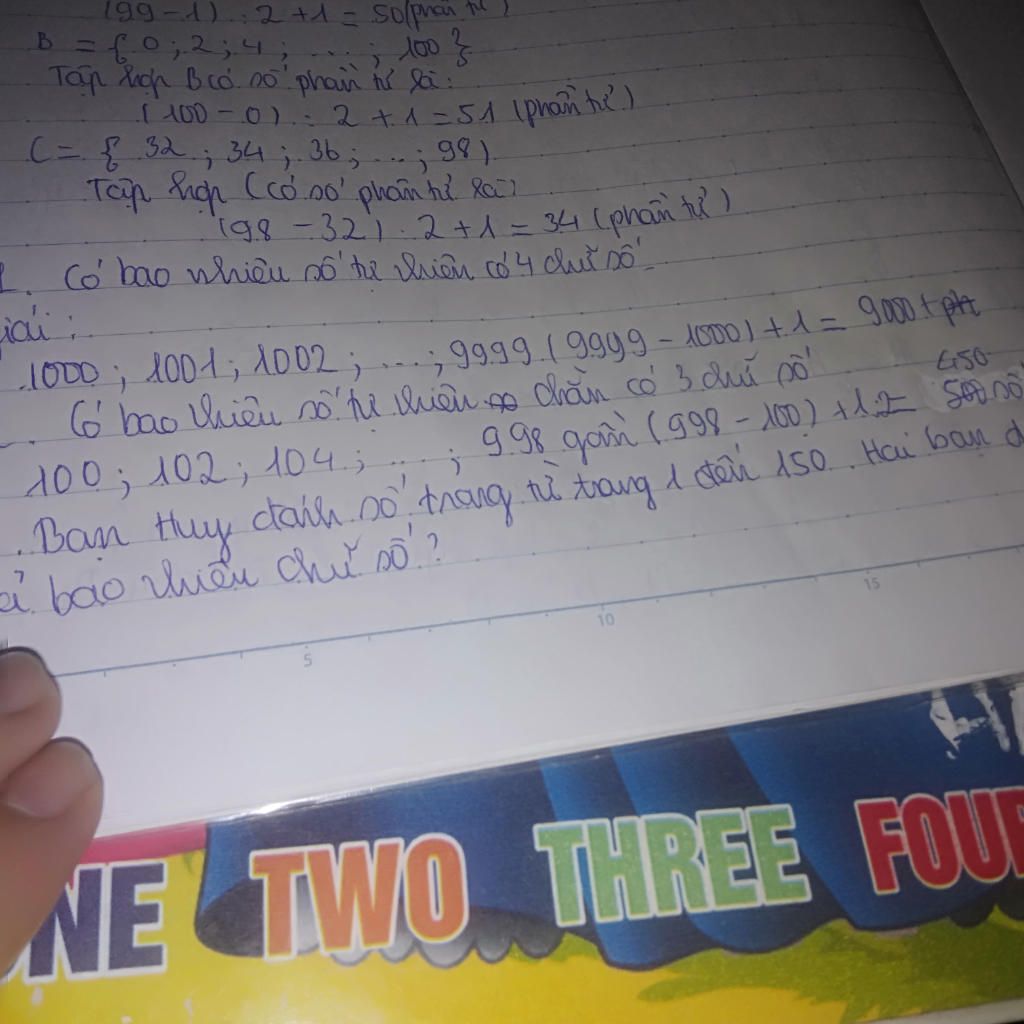 (99-1) : 2 + 1 = 50 (phần tử)
B = { 0 ; 2 ; 4 ; ... ; 100 }
Tập hợp B có số phần tử là:
(100 - 0) : 2 + 1 = 51 (phần tử)
C = { 32 ; 34 ; 36 ; ... ; 98)
Tập hợp C có số phần tử là:
(98 - 32) : 2 + 1 = 34 (phần tử)
Có bao nhiêu số tự nhiên có 4 chữ số
giải :
1000 ; 1001 ; 1002 ; ... ; 9999 (9999 - 1000) + 1 = 9000
Có bao nhiêu số tự nhiên chẵn có 3 chữ số
450
100 ; 102 ; 104 ; ... ; 998 gồm (998 - 100) + 1.2 = 500 số
. Bạn Huy đánh số trang từ trang 1 đến 150. Hai bạn
bao nhiêu chữ số ?
5 10 15
NE TWO THREE FOUR